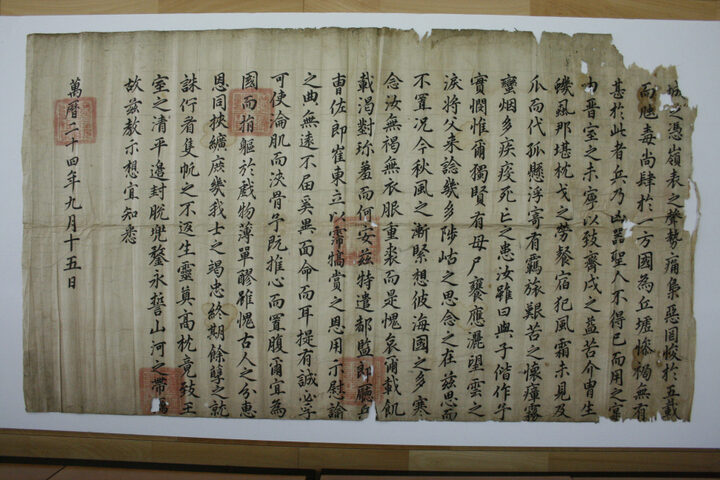 之憑嶺表之聲勢痛梟惡罔悛於五載
而虺毒尚肆於一方國為丘墟慘禍無有
甚於此者兵乃凶器聖人不得已而用之寔
由晋室之未寧以致齊戍之益苦介冑生
蟣風那堪枕戈之勞餐宿犯風霜未見及
瓜而代孤懸浮寄有羈旅艱苦之懷瘴霧
蠻烟多疾疫死亡之患汝雖曰與子偕作予
實憫惟爾獨賢有母尸饔應灑望雲之
淚將父來諗幾多陟岵之思念之在玆思而
不寘况今秋風之漸緊想彼海國之多寒
念汝無褐無衣服重裘而是愧哀爾載飢
載渴對珎羞而何安玆特遣都監郎廳兵
曹佐郎崔東立以霈犒賞之恩用示慰諭
之典無遠不届奚異面命而耳提有誠必孚
可使淪肌而浹骨予既推心而置腹爾宜為
國而捐軀於戯物薄單醪雖愧古人之分惠
恩同挾纊庶幾我士之竭忠終期餘孽之就
誅佇看隻帆之不返生靈奠高枕竟致王
室之清平邊封脫兜鍪永誓山河之帶礪
故玆教示想宜知悉
萬曆二十四年九月十五日